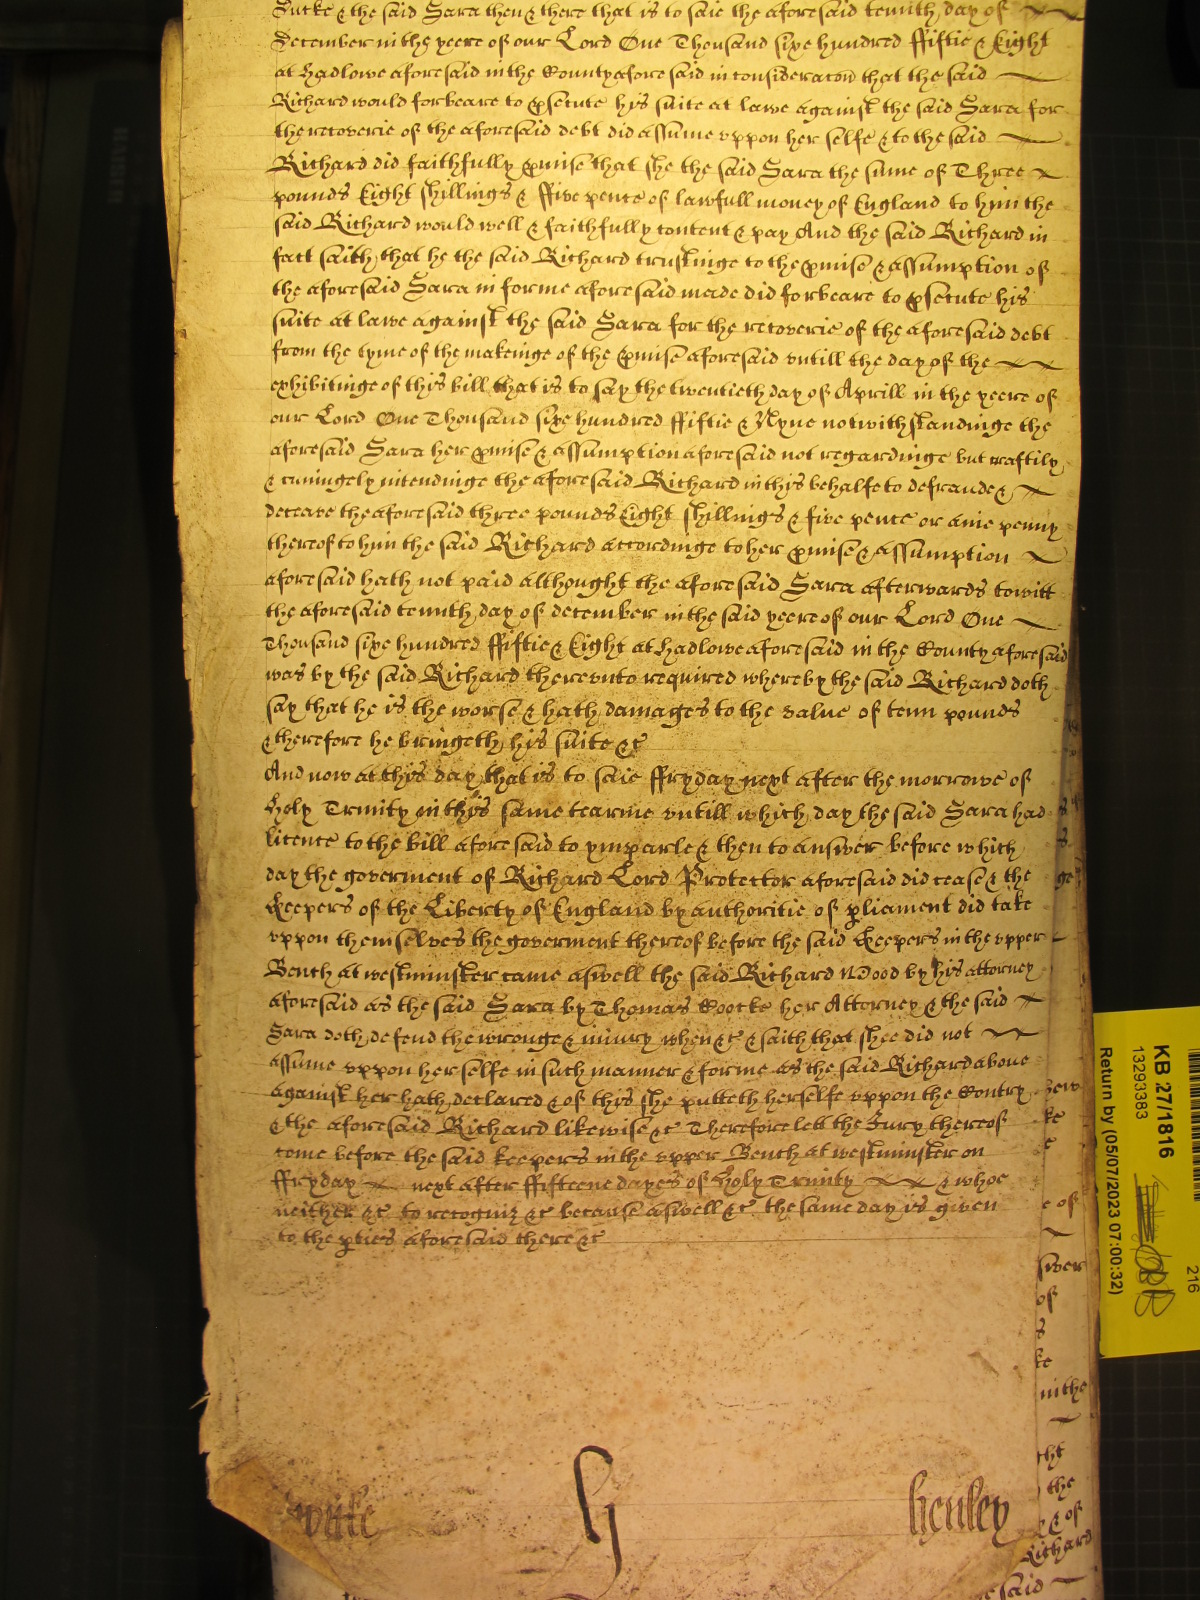 Sucke & the said Sara then & there that is to saie the aforesaid tennth day of
December in the yeere of our Lord One Thousand sixe hundred ffiftie & Eight
at Hadlowe aforesaid in the County aforesaid in consideracon that the said
Richard would forbeare to psecute his suite at lawe against the said Sara for
the recoverie of the aforesaid debt did assume vppon her selfe & to the said
Richard did faithfully pmise that she the said Sara the sume of Three
pounds Eight shillings & ffive pence of lawfull money of England to him the
said Richard would well & faithfully content & pay And the said Richard in
fact saith that he the said Richard trustinge to the pmise & assumption of
the aforesaid Sara in forme aforesaid made did forbeare to psecute his
suite at lawe against the said Sara for the recoverie of the aforesaid debt
from the tyme of the makeinge of the pmise aforesaid vntill the day of the
exhibitinge of this bill that is to say the twentieth day of Aprill in the yeere of
our Lord One Thousand sixe hundred ffiftie & Nyne notwithstandinge the
aforesaid Sara her pmise & assumption aforesaid not regardinge but craftily
& cuningely intendinge the aforesaid Richard in this behalfe to defraude &
deceave the aforesaid three pounds Eight shillings & five pence or anie penny
thereof to him the said Richard accordinge to her pmise & assumption
aforesaid hath not paid althought the aforesaid Sara afterwards towitt
the aforesaid tennth day of december in the said yeere of our Lord One
Thousand sixe hundred ffiftie & Eight at Hadlowe aforesaid in the County aforesaid
was by the said Richard therevnto required whereby the said Richard doth
say that he is the worse & hath damages to the value of tenn pounds
& therefore he bringeth his suite &c
And now at this day that is to saie ffryday next after the morrowe of
Holy Trinity in this same tearme vntill which day the said Sara had
licence to the bill aforesaid to ymparle & then to answer before which
day the goverment of Richard Lord Protector aforesaid did cease & the
Keepers of the Liberty of England by authoritie of pliament did take
vppon themselves the goverment thereof before the said Keepers in the vpper
Bench at westminster came aswell the said Richard Wood by his attorney
aforesaid as the said Sara by Thomas Roocke her Attorney & the said
Sara doth defend the wronge & iniury when &c & saith that shee did not
assume vppon her selfe in such manner & forme as the said Richard above
against her hath declared & of this she putteth herselfe vppon the Contry
& the aforesaid Richard likewise &c Therefore lett the Jury thereof
come before the said keepers in the vpper Bench at westminster on
ffryday next after ffifteene dayes of Holy Trinity & whoe
neither &c to recogniz &c because aswell &c the same day is given
to the pties aforesaid there &c
henley
KB 27/1816
13293383
Return by (05/07/2023 07:00:32)
216
ke
e
e of
swer
of
ke
in the
the
& of
Richard
said